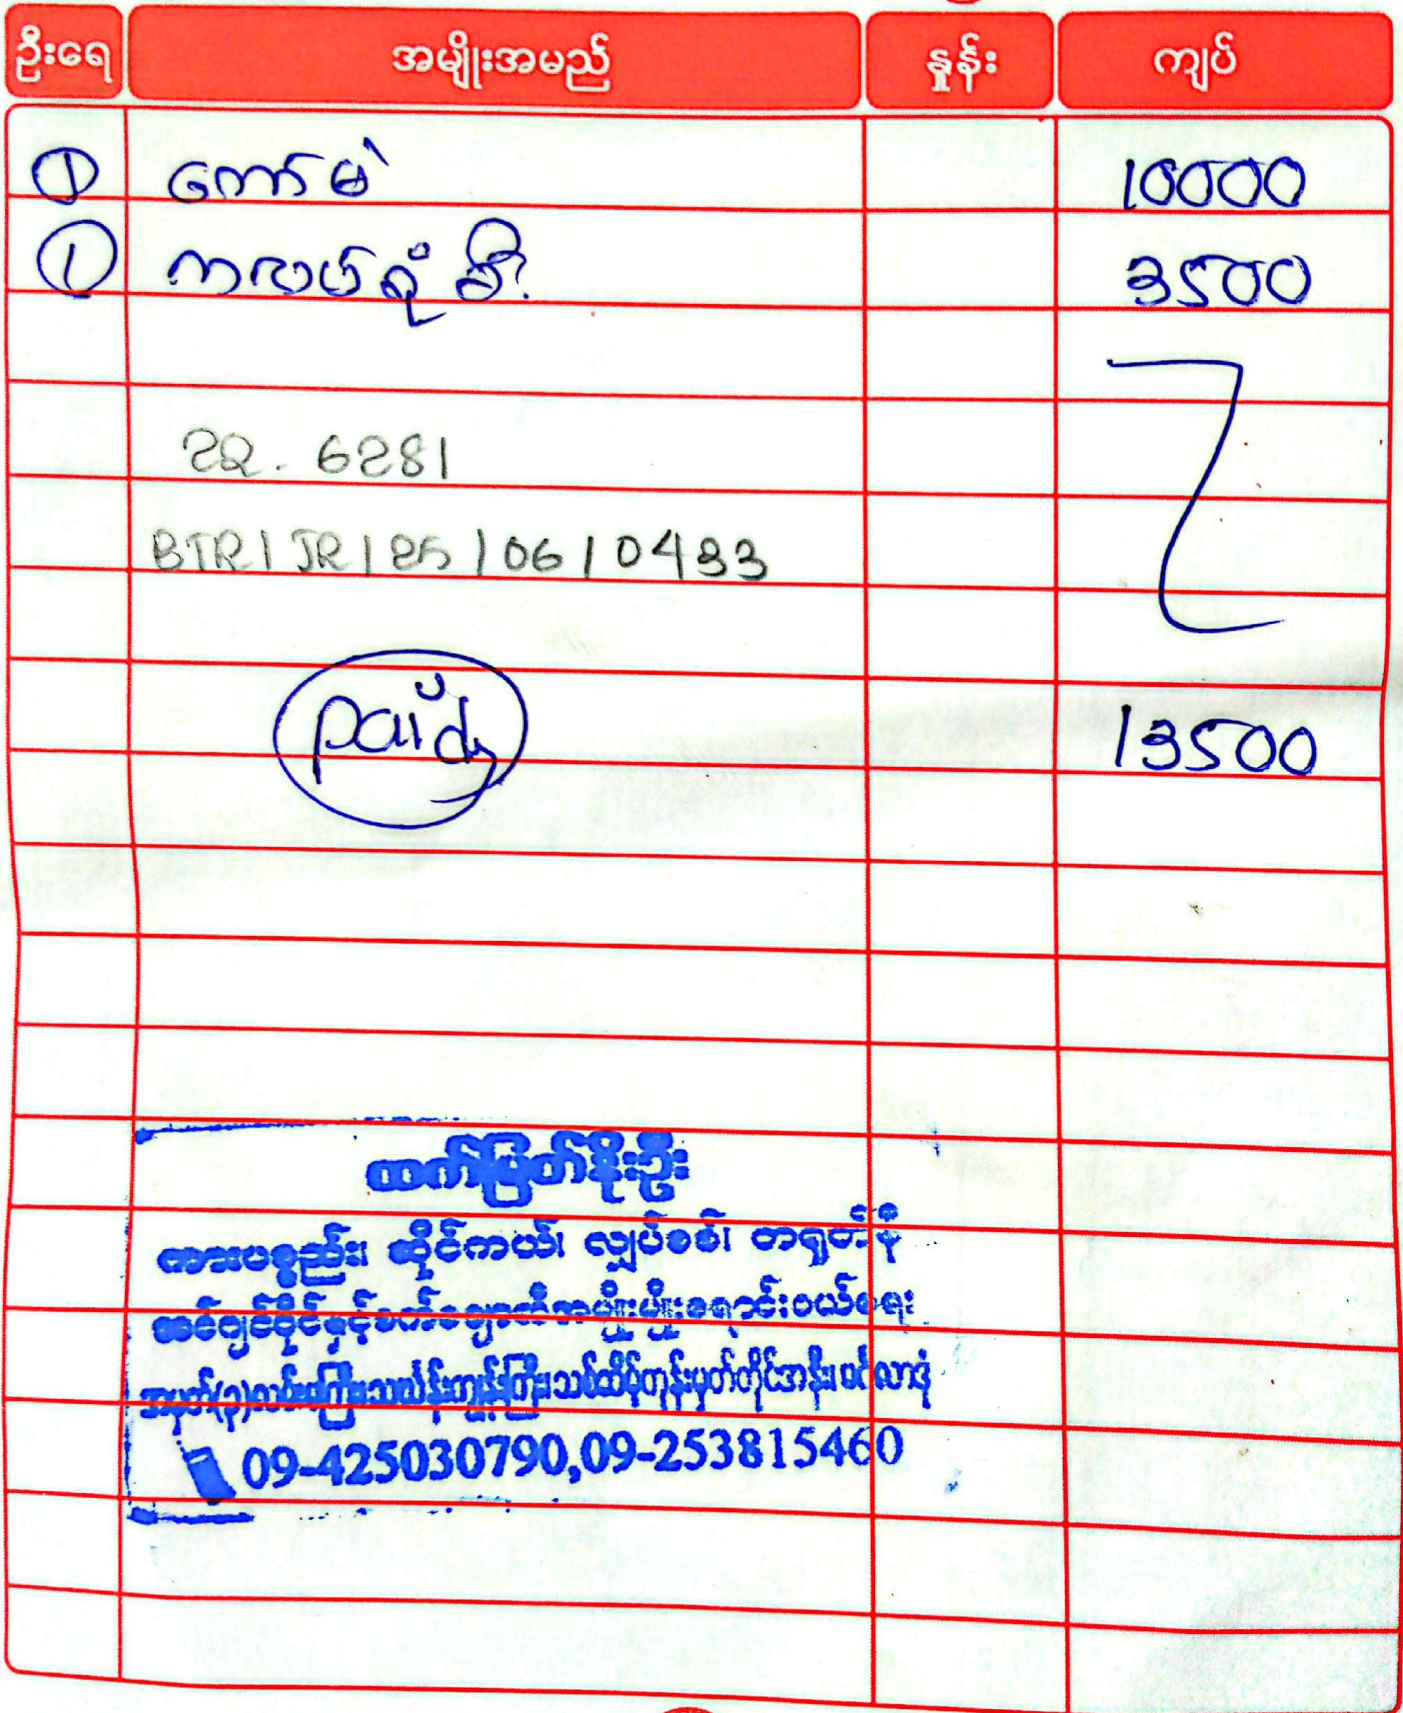 ဦးရေ အမျိုးအမည် နှုန်း ကျပ်
① ကော်မဲ 10000
① ကလပ် 3500
2Q. 6281
BTR/JR/25/06/0433
paid 13500
ထက်မြတ်နိုးဦး
ကားပစ္စည်း၊ ဆိုင်ကယ်၊ လျှပ်စစ်၊ တရုတ်မို
အင်ဂျင်ဝိုင်နှင့်စက်ချောဆီအမျိုးမျိုးရောင်းဝယ်ရေး
အမှတ်(၃)လမ်းမကြီး၊ အနီး၊ မင်္ဂလာဒုံ
09-425030790,09-253815460